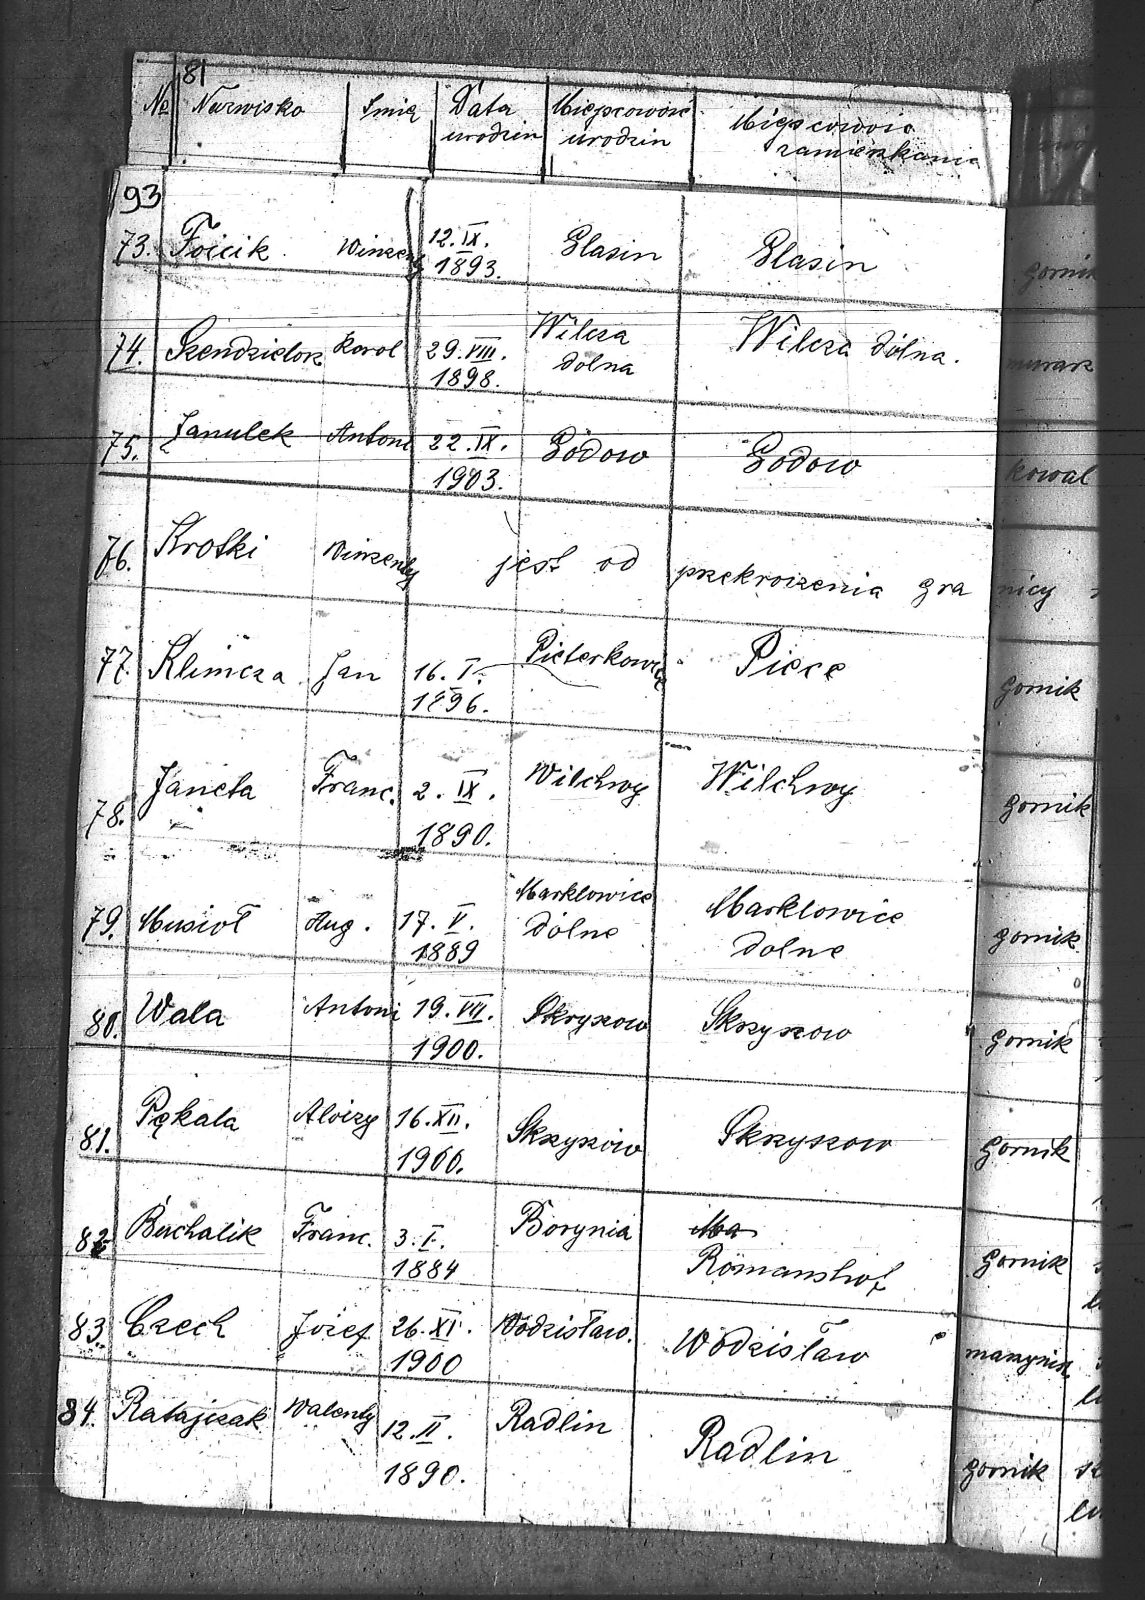 81
№ Nazwisko Imię Data urodzin Miejscowość urodzin Miejscowość zamieszkania
93
73. Foicik Winzenty 12. IX. 1893. Glasin Glasin gornik
74. Szendzielorz Karol 29. VIII. 1898. Wilcza dolna Wilcza dolna. murarz
75. Janulek Antoni 22. IX. 1903. Godow Godow kowal
76. Krotki Winzenty jest od przekroczenia granicy
77. Klimcza Jan 16. I. 1896. Piece gornik
78. Janeta Franc. 2. IX. 1890. Wilchwy Wilchwy gornik
79. Musioł Aug. 17. V. 1889 Marklowice dolne Marklowice dolne gornik
80. Wala Antoni 19. VII. 1900. Skrzyszow Skrzyszow gornik
81. Pękala Aloizy 16. XII. 1900. Skrzyszów Skrzyszow gornik
82 Buchalik Franc. 3. I. 1884 Borynia Ma Romanshof gornik
83. Czech Józef 26. XI. 1900 Wodzisław. Wodzisław maszynist
84. Ratajczak Walenty 12. II. 1890. Radlin Radlin gornik